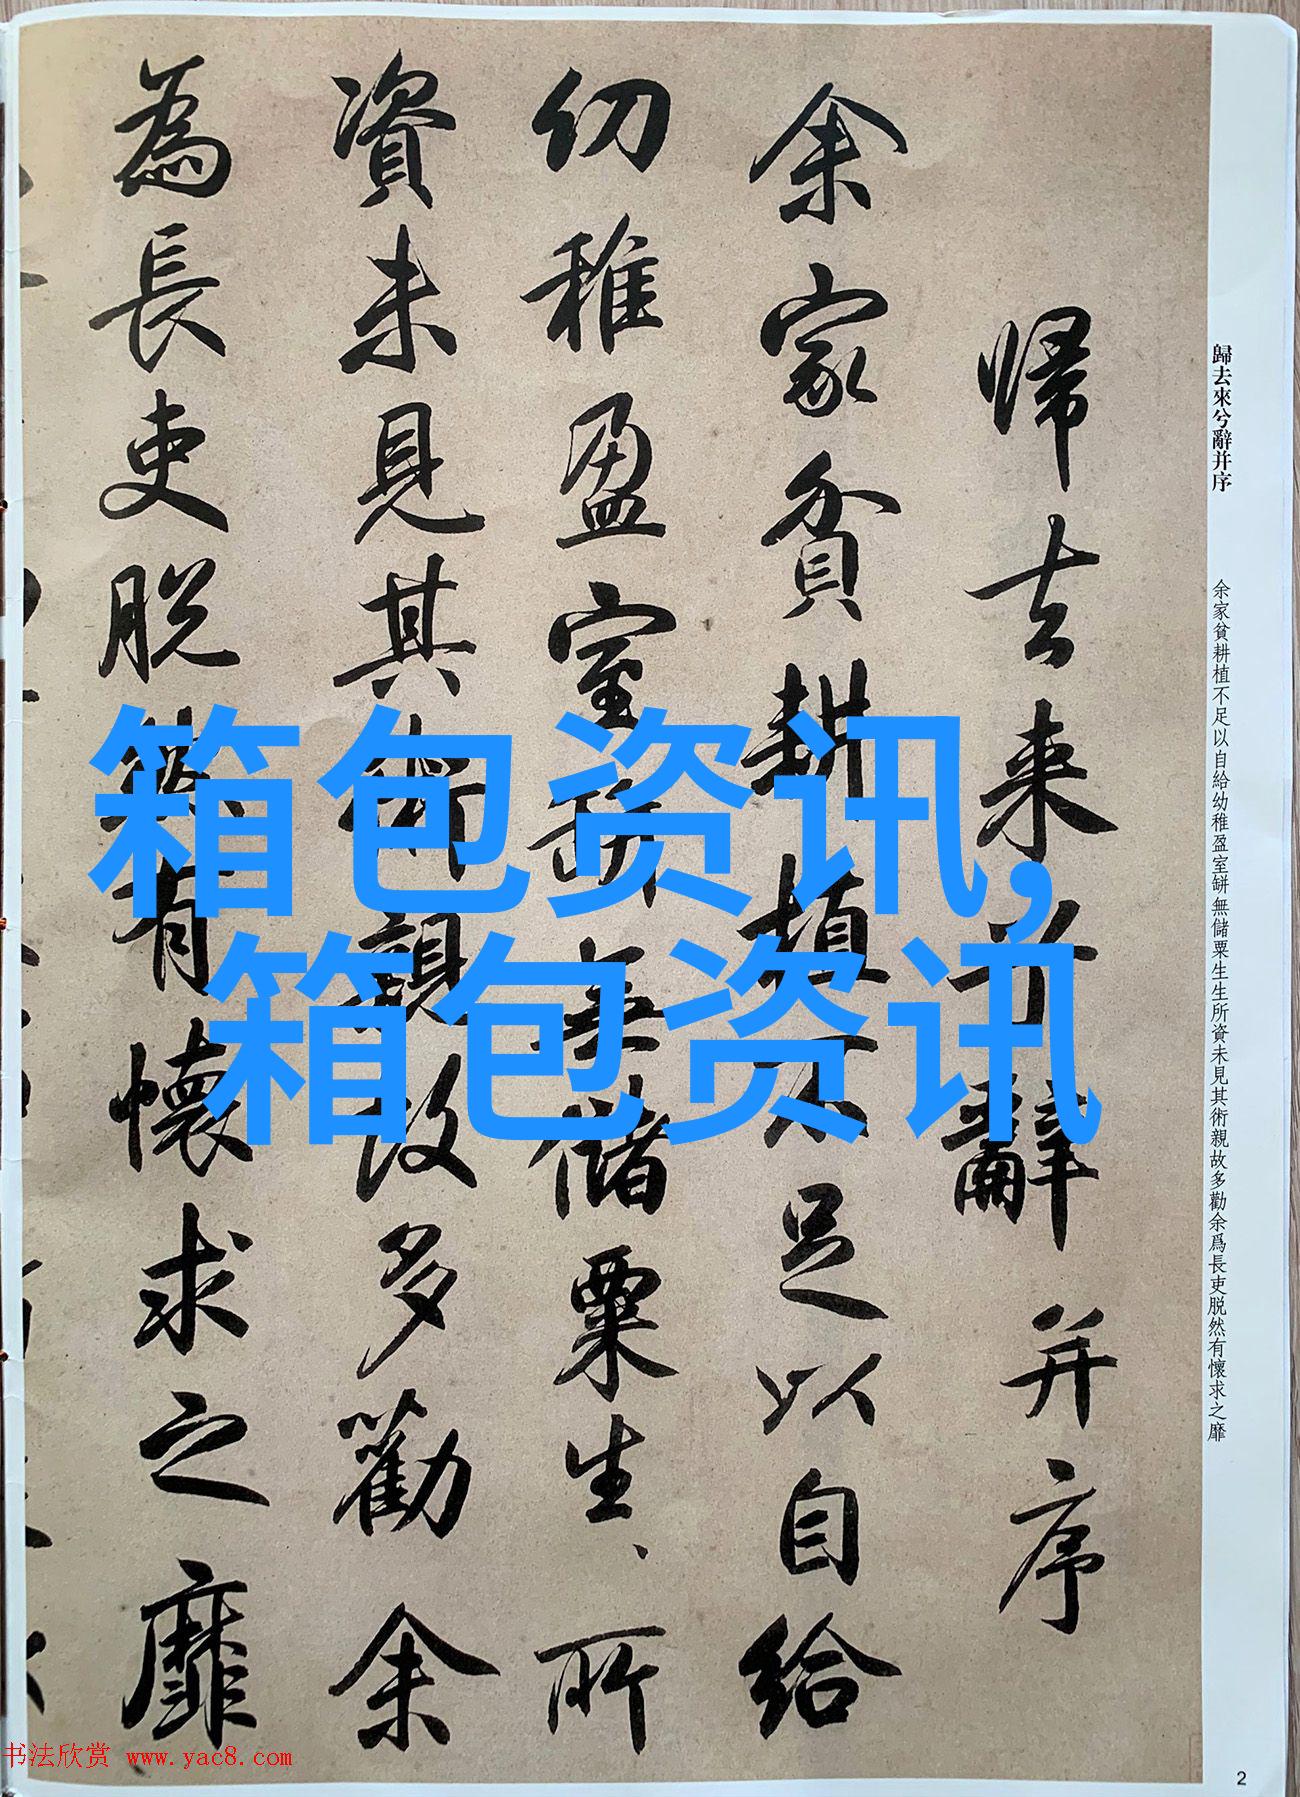 歸去來兮辭并序
余家貧耕植不足以自給幼稚盈室缾無儲粟生生所資未見其術親故多勸余爲長吏脱然有懷求之靡
帰去来兮辭并序
余家貧耕植不足以自給
幼稚盈室缾無儲粟生、所
資未見其術親故多勸余
為長吏脱然有懷求之靡
箱包资讯,
箱包资讯
书法欣赏 www.yac8.com
2